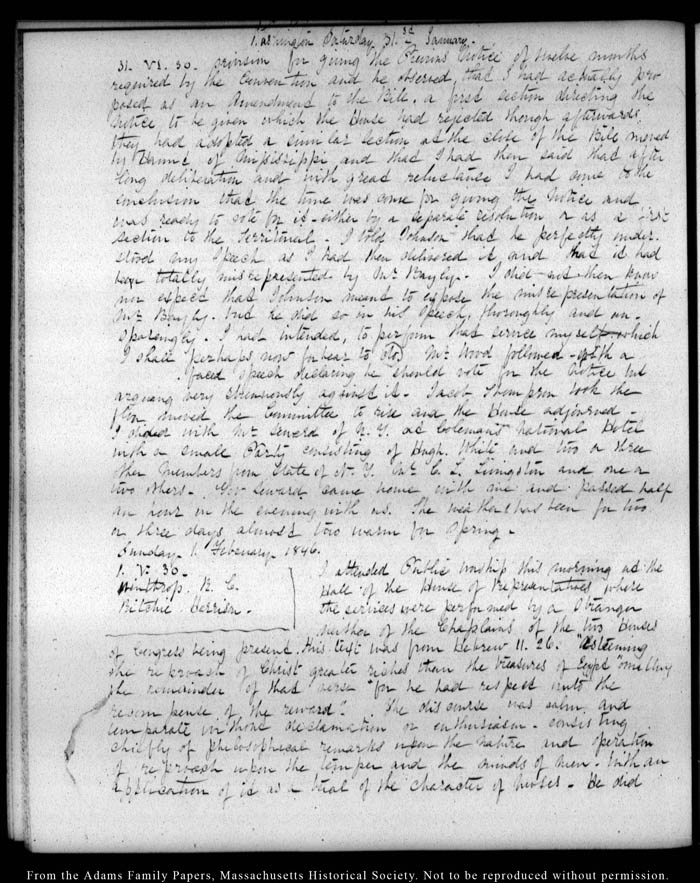 Washington Saturday 31.st January.
31. VI. 30. provision for giving the Previous Notice of twelve months
required by the Convention and he observed, that I had actually pro
posed as an Amendment to the Bill, a first section directing the
Notice to be given which the House had rejected though afterwards
they had adopted a similar section at the close of the Bill moved
by of Mississippi and that I had then said that after
long deliberation and with great reluctance I had come to the
conclusion that the time was come for giving the Notice and
was ready to vote for it - either by a separate resolution or as a first
section to the Territorial. I told Johnson that he perfectly under
stood my Speech as I had then delivered it and that it had
been totally misrepresented by Mr Bayly. I did not then know
nor expect that Johnson meant to expose the misrepresentation of
Mr Bayly. but he did so in his Speech, thoroughly and un-
sparingly. I had intended, to perform that service myself which
I shall perhaps now forbear to do. Mr Wood followed with a
faced Speech declaring he should vote for the Notice but
arguing very strenuously against it. Jacob Thompson took the
floor moved the Committee to rise and the House adjourned -
I dined with Mr Seward of N. Y. at Coleman's National Hotel
with a small Party consisting of Hugh White and two or three
other Members from State of N. Y. Mr C. L. Livingston and one or
two others. Gov Seward came home with me and passed half
an hour in the evening with us. The weather has been for two
or three days almost too warm for Spring.
Sunday 1. February 1846.
1. V. 30.
Winthrop. R. C.
Ritchie
I attended Public worship this morning at the
Hall of the House of Representatives where
the services were performed by a Stranger
neither of the Chaplains of the two Houses
of Congress being present. His text was from Hebrew 11. 26. "Esteeming
the reproach of Christ greater riches than the treasures of Egypt" omitting
the remainder of that verse "for he had respect unto the
recompense of the reward". The discourse was calm, and
temperate without declamation or enthusiasm - consisting
chiefly of philosophical remarks upon the nature and operation
of reproach upon the temper and the minds of men. With an
application of it as a trial of the character of Moses. He did
From the Adams Family Papers, Massachusetts Historical Society. Not to be reproduced without permission.